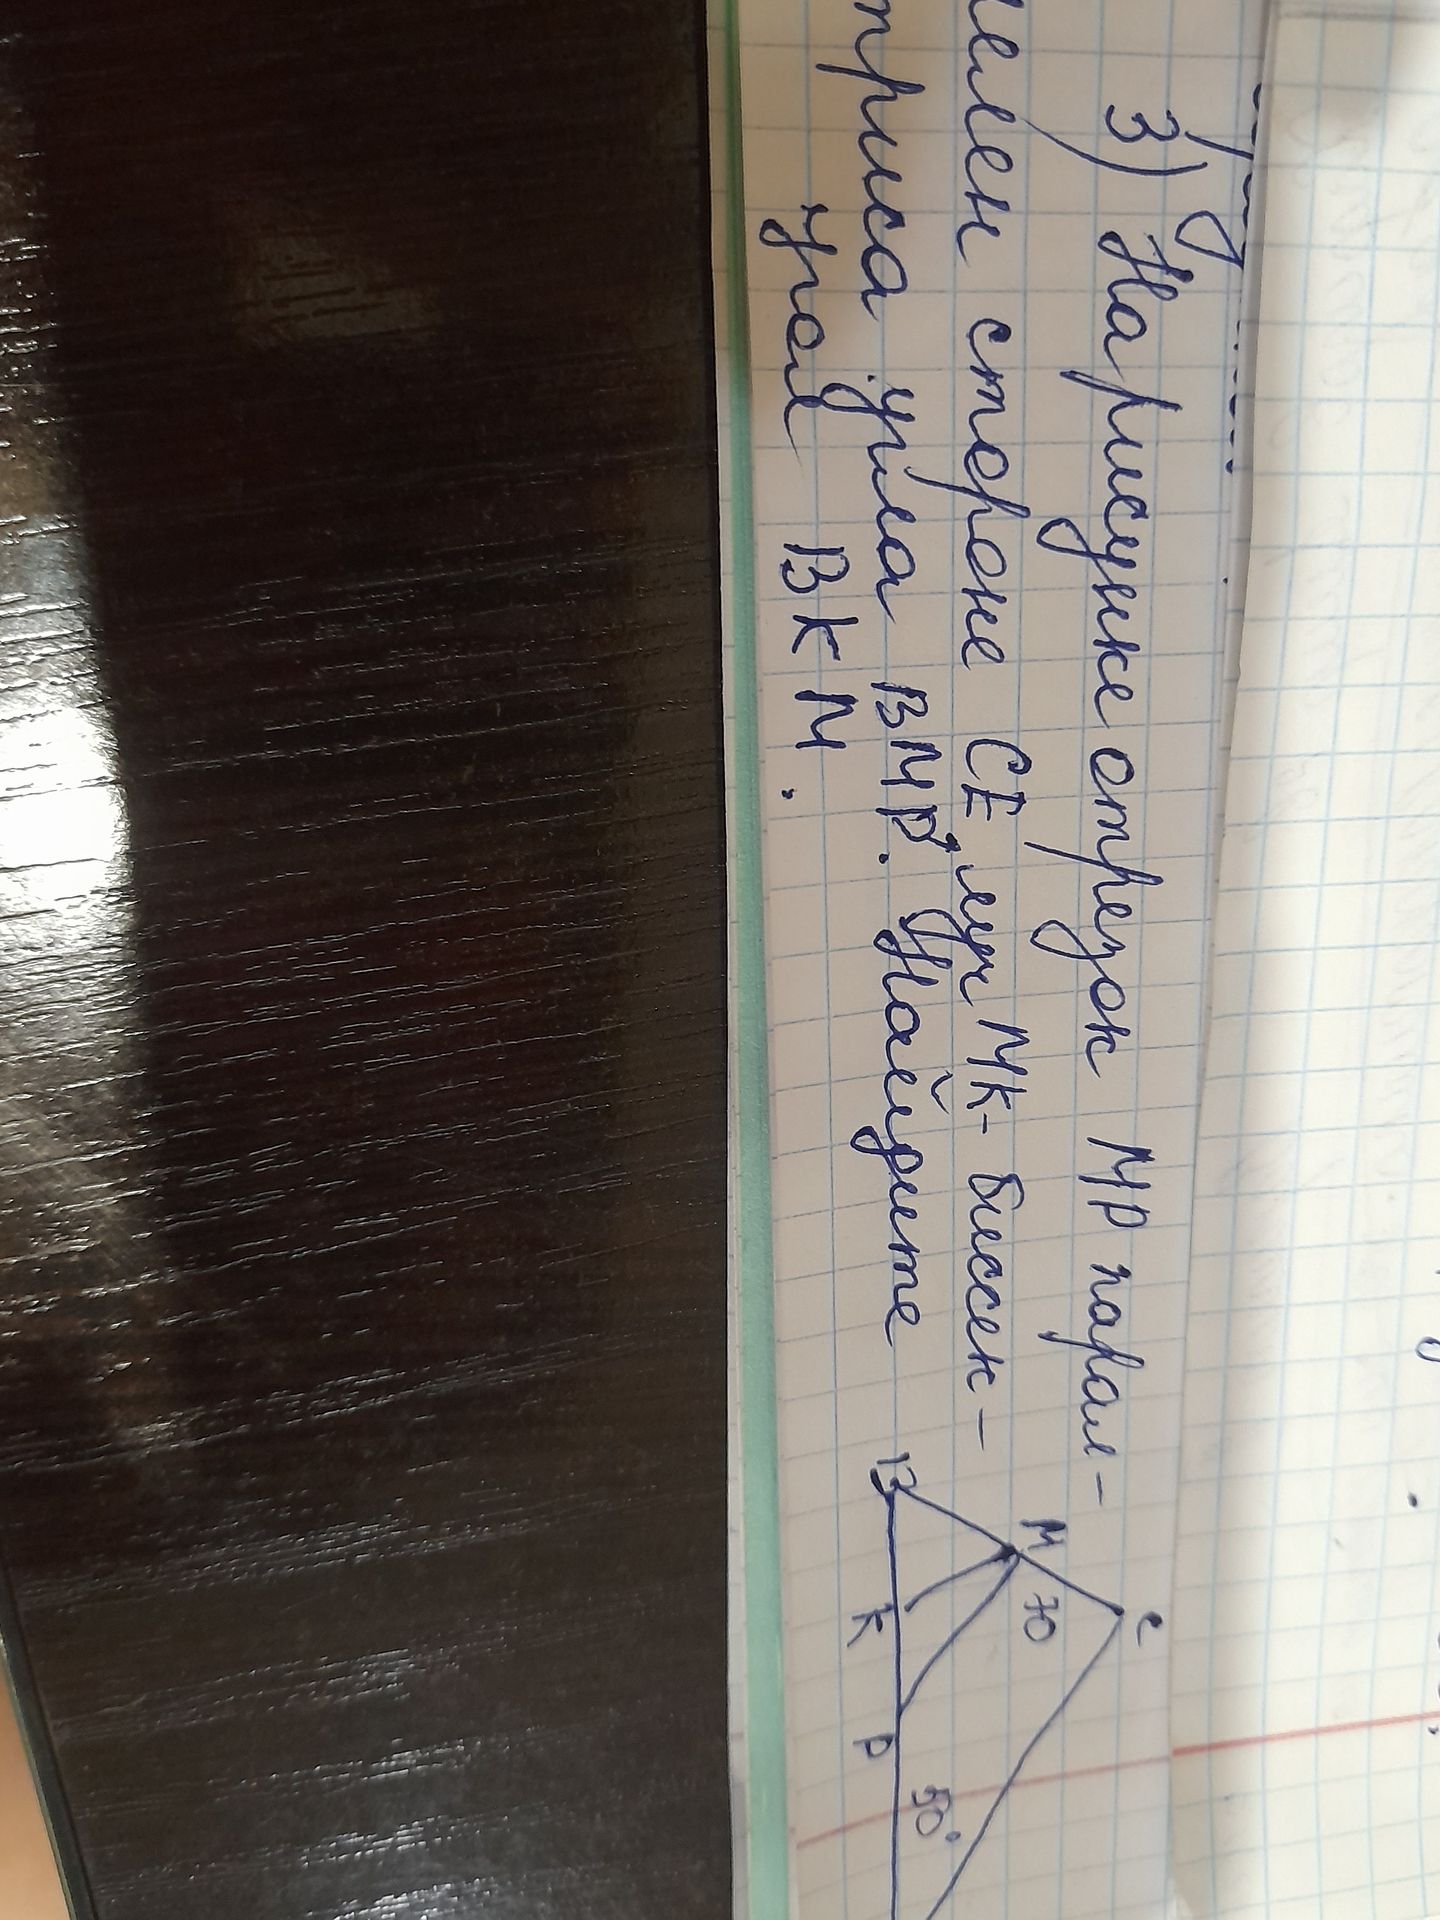 3) На рисунке отрезок МР парал-
лелен стороне СЕ, луч МК - биссек-
триса угла ВМР. Найдите
угол ВКМ.
С
М
70
В
К
Р
50°